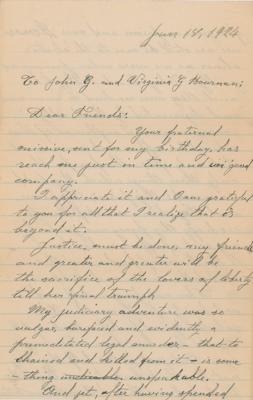 June 18, 1924
To John G. and Virginia G Bowman;
Dear Friends:
Your fraternal
missive, sent for my birthday, has
reach me just in time and in good
company.
I appriciate it and I am grateful
to you for all that I realize that is
beyond it.
Justice, must be done, my friends
and greater and greater will be
the sacrifice of the lovers of liberty
till her final triumph
My judiciary adventure was so
vulgar, barefaced and evidently a
premeditated legal murder - that to
shained and killed from it - is some
- thing unspeakable.
And yet, after having spended